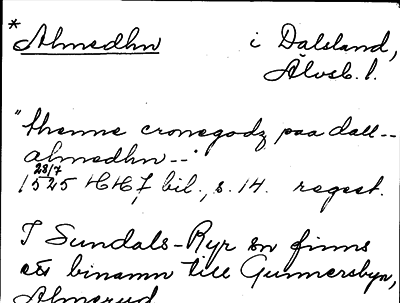 * Ahmedhn i Dalsland,
Älvsb. l.
"thenne cronegodz paa dall--
ahmedhn--"
28/7
1525 HH 7 bil., s. 14. regest.
I Sundals-Ryr sn finns
ett binamn till Gunnersbyn,
Ahmerud